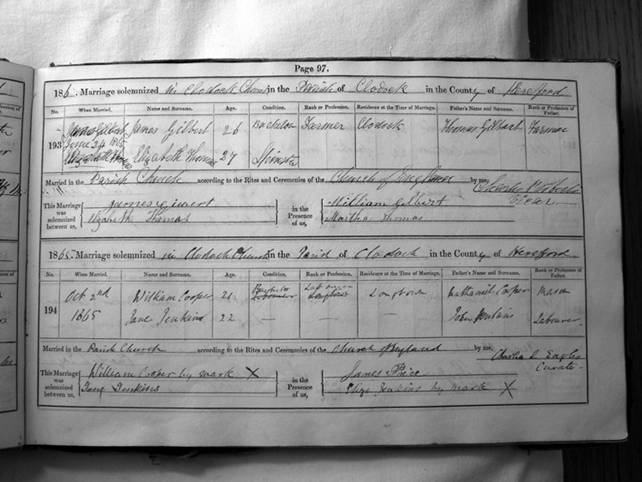 Page 97.
186 . Marriage solemnized in Clodock Church in the Parish of Clodock in the County of Hereford
No. When Married. Name and Surname. Age. Condition. Rank or Profession. Residence at the Time of Marriage. Father's Name and Surname. Rank or Profession of Father.
193 James Gilbert 26 Bachelor Farmer Clodock Thomas Gilbert Farmer
June 24
Elizabeth Thomas 27 Spinster
Married in the Parish Church according to the Rites and Ceremonies of the Church of by me, Charles
This Marriage was solemnized between us, in the Presence of us, William Gilbert
Elizabeth Thomas Martha Thomas
1865. Marriage solemnized in Clodock Church in the Parish of Clodock in the County of Hereford
No. When Married. Name and Surname. Age. Condition. Rank or Profession. Residence at the Time of Marriage. Father's Name and Surname. Rank or Profession of Father.
194 Oct 2nd William Cooper 21 Longtown Nathaniel Cooper Mason
1865 Jane Jenkins 22 — — Labourer
Married in the Parish Church according to the Rites and Ceremonies of the Church by me, Charles L Eagles
Curate
This Marriage was solemnized between us, William Cooper by mark X in the Presence of us, James Price
Jane Jenkins Jenkins by mark X